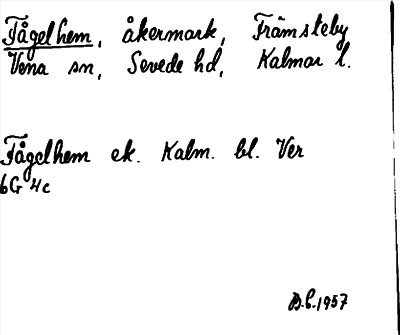 Fågelhem, åkermark, Främsteby
Vena sn, Sevede hd, Kalmar l.
Fågelhem ek. Kalm. bl. Ver
6G 4c
B.E.1957